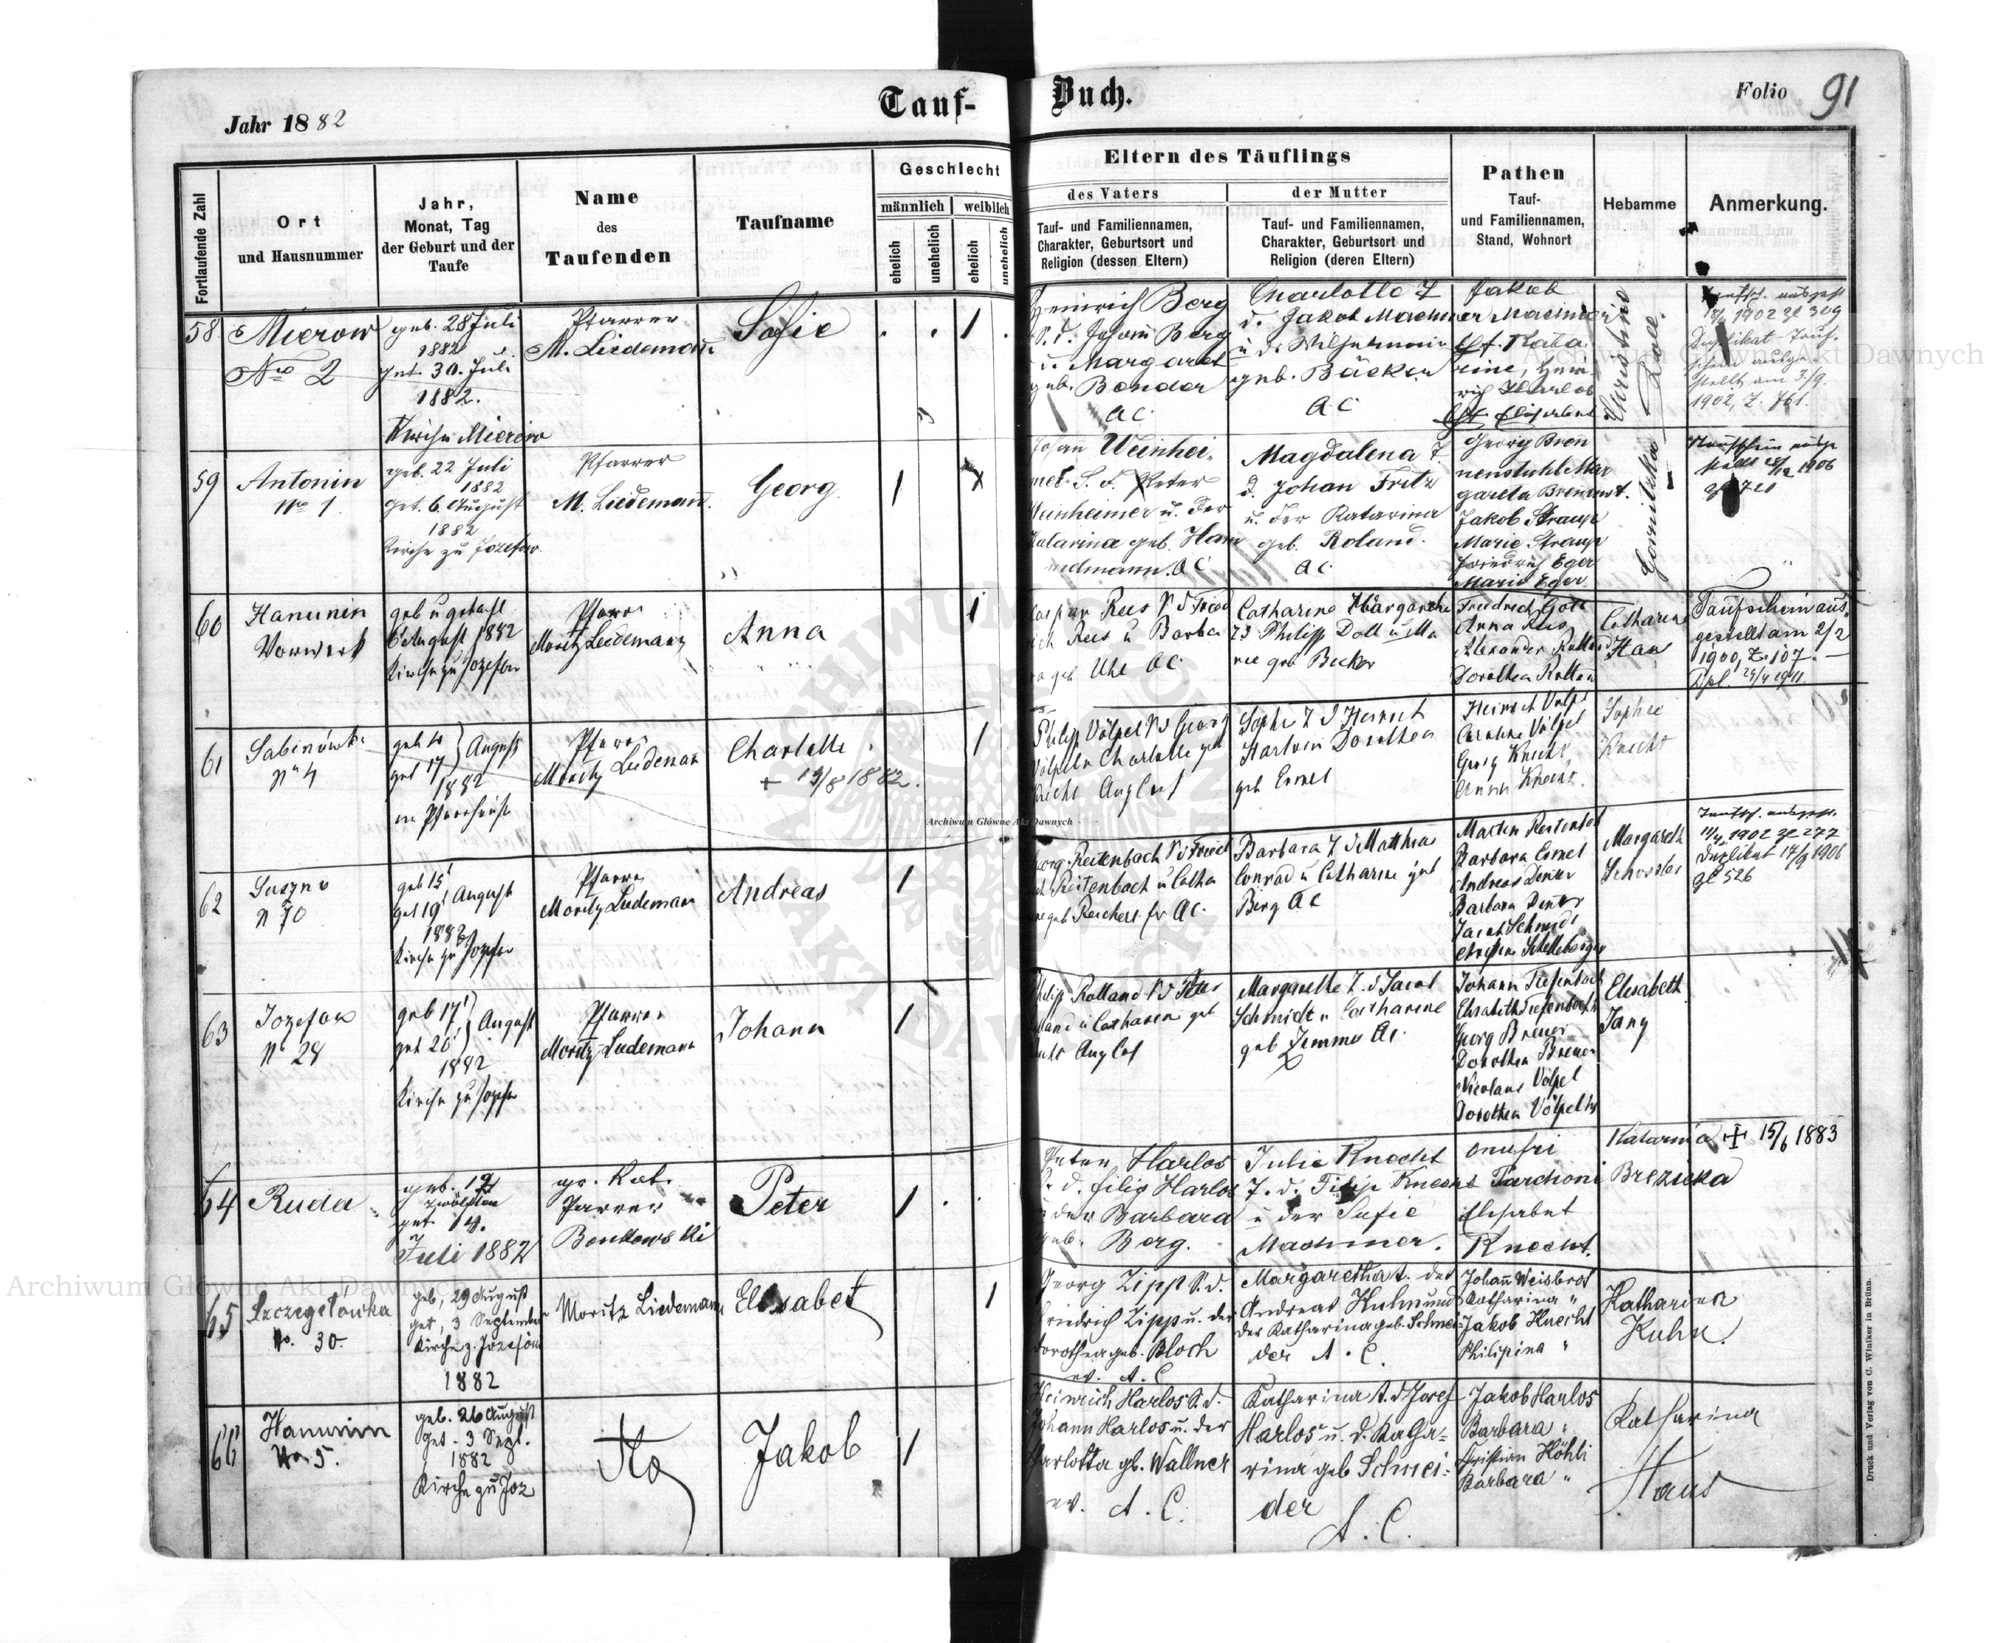 Tauf-
Buch.
Jahr 1882
Folio 91
Fortlaufende Zahl
Ort
und Hausnummer
Jahr,
Monat, Tag
der Geburt und der
Taufe
Name
des
Taufenden
Taufname
Geschlecht
männlich
weiblich
ehelich
unehelich
ehelich
unehelich
Eltern des Täuflings
des Vaters
Tauf- und Familiennamen,
Charakter, Geburtsort und
Religion (dessen Eltern)
der Mutter
Tauf- und Familiennamen,
Charakter, Geburtsort und
Religion (deren Eltern)
Pathen
Tauf-
und Familiennamen,
Stand, Wohnort
Hebamme
Anmerkung.
58
Mierow
No 2
geb. 28 Juli
1882
get. 30. Juli
1882.
Kirche Mierow
Pfarrer
M. Liedemann
Sofie
1
Heinrich Berg
S. d. Johann Berg
u. Margaret
geb. Bender
AC.
Charlotte T
d. Jakob Machmer
u. d. Wilhelmine
geb. Bäcker
AC
Jakob
1902
59
Antonin
No 1.
geb. 22 Juli
1882
get. 6. August
1882
Kirche zu Josefow
Pfarrer
M. Liedemann.
Georg
1
Johan Weinhei-
mer S. d. Peter
Weinheimer u. der
Katarina geb. Ham
melmann. AC
Magdalena T
d. Johan Fritz
u. der Katarina
geb. Roland.
AC.
Georg Bren
nenstuhl Mar
gareta Brennenst.
Jakob Straup
Marie Straup
Friedrich Eger
Marie Eger
1906
60
Hanunin
Vorwerk
geb u getauft
6 August 1882
Kirche zu Jozefow
Pfarrer
Moritz Liedemann
Anna
1
Caspar Rees S d Fried
rich Rees u Barba
ra geb Uhl AC.
Catharine Margarethe
T d Philipp Doll u Ma
rie geb Becker
Friedrich Goll
Anna Rees
Alexander Rolland
Dorothea Rolland
Catharina
Haas
Taufschein aus-
gestellt am 2/2
1900, Z. 107.
61
Sabinówka
No 4
geb 10
get 17 } August
1882
im Pfarrhause
Pfarrer
Moritz Liedeman
Charlotte
+ 19/8 1882.
1
Philipp Völpel S d Georg
Völpel u Charlotte geb
Knecht Augs Conf
Sophie T d Heinrich
Harlos Dorothea
geb Ermel
Heinrich Völpel
Caroline Völpel
Georg Knecht
Anna Knecht
Sophie
Knecht
62
Suszno
No 70
geb 15
get 19 } August
1882
Kirche zu Jozefow
Pfarrer
Moritz Liedemann
Andreas
1
Georg Reitenbach S d Fried
rich Reitenbach u Catha
rine geb Reichert AC.
Barbara T d Matthias
Conrad u Catharine geb
Berg AC
Barbara Ermel
Jacob Schmidt
Margareth
1902
Duplikat 17/9 1906
Zl 526
63
Jozefow
No 28
geb 17
get 20 } August
1882
Kirche zu Jozefow
Pfarrer
Moritz Liedemann
Johann
1
Philipp Rolland S d Peter
Rolland u Catharine geb
Margarethe T. d Jacob
Schmidt u Catharine
geb Zemmer AC.
Johann Tiefenbach
Elisabeth Tiefenbach
Georg Breuer
Dorothea Breuer
Nicolaus Völpel
Dorothea Völpel
Elisabeth
Jany
64
Ruda
geb. 12
zwölften
get. 14.
Juli 1882
gr. Kat.
Pfarrer
Bonkowski
Peter
1
Peter Harlos
S. d. Filip Harlos
u der Barbara
geb. Berg.
Julie Knecht
T. d. Filip Knecht
u der Sufie
Machmer.
Onufri
Parchoni
Elisabet
Knecht.
Katarina
Brezicka
✝ 15/6 1883
65
Szczegłówka
No. 30.
geb. 29 August
get. 3 September
Kirche z. Jozefow
1882
Moritz Liedemann
Elisabet
1
Georg Zipp S. d.
Friedrich Zipp u. der
Dorothea geb. Bloch
ev. A. C.
Margaretha t. des
Andreas Kuhn und
der Katharina geb. Schnei-
der A. C.
Johann Weisbrot
Katharina "
Jakob Knecht
Philipina "
Katharina
Kuhn.
66
Hanunin
No. 5.
geb. 26 August
get. 3 Sept.
1882
Kirche zu Joz
Jakob
1
Heinrich Harlos S. d.
Johann Harlos u. der
Charlotta gb. Wallner
ev. A. C.
Katharina t. d Josef
Harlos u. d. Katha-
rina geb Schnei-
der
A. C.
Jakob Harlos
Barbara "
Christian Höhli
Barbara "
Katharina
Haus
Druck und Verlag von C. Winiker in Brünn.
Archiwum Główne Akt Dawnych
Archiwum Główne Akt Dawnych
Archiwum Główne Akt Dawnych